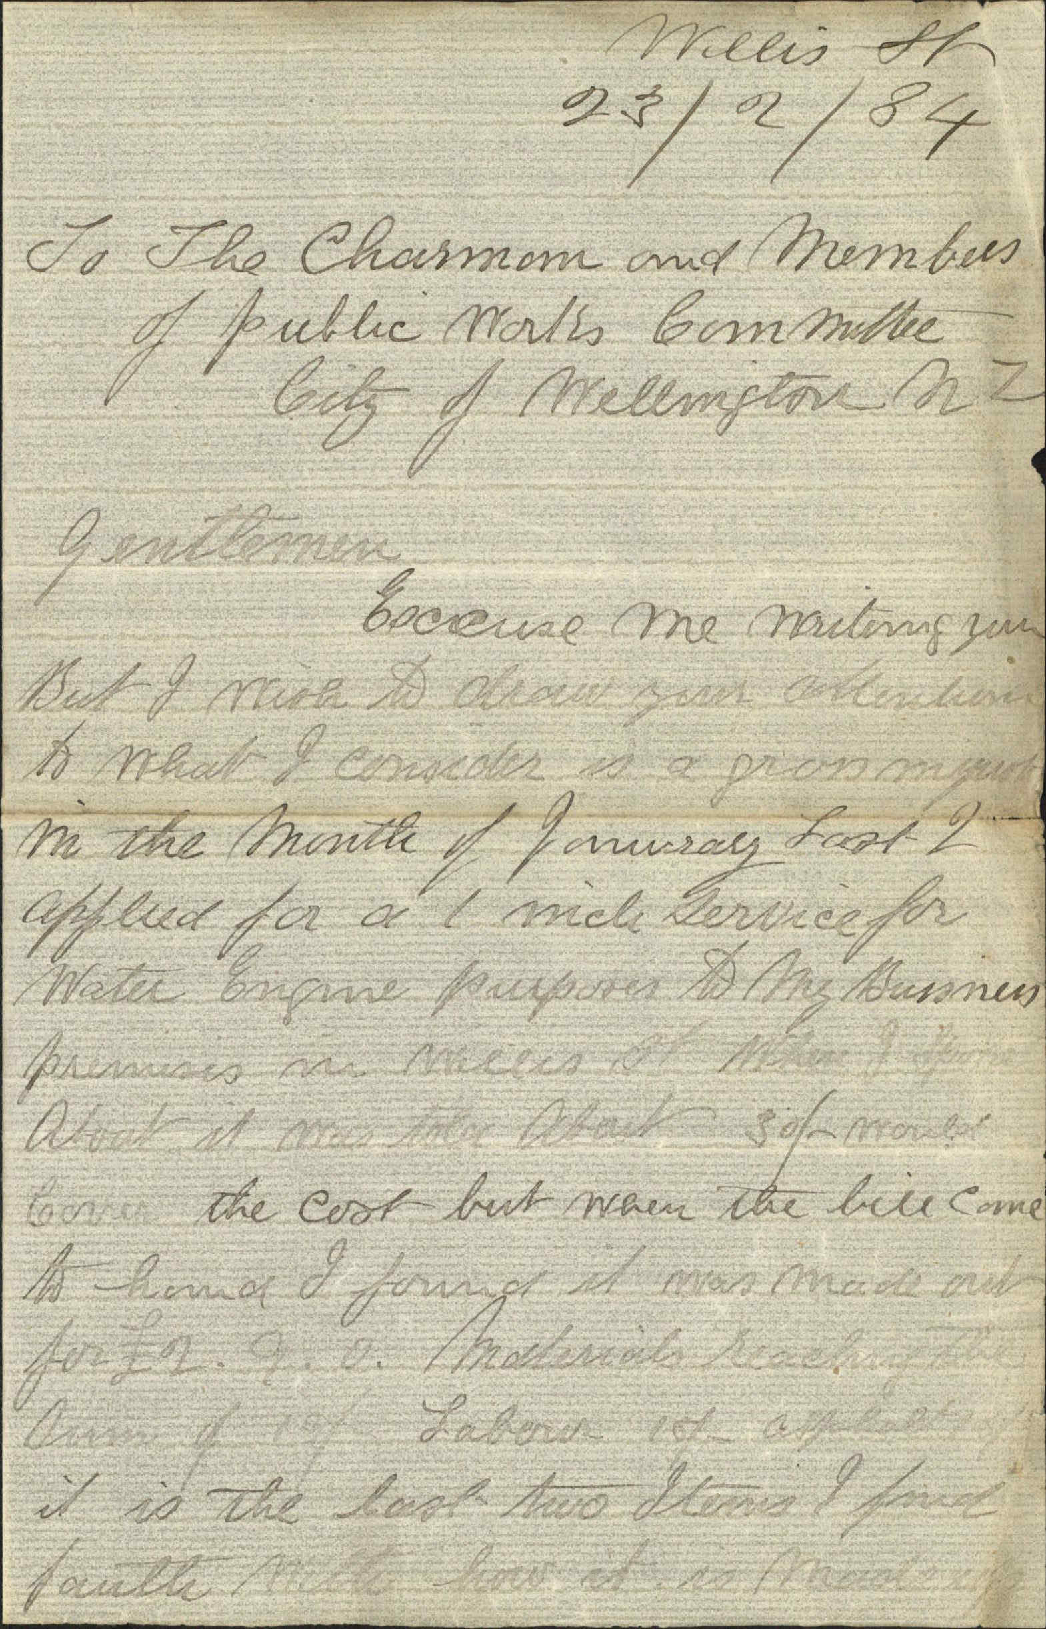 Willis St
23/2/84
To The Charman and Members
of public Works Committee
City of Wellington N Z
Gentlemen
Excuse me writing you
But I wish to draw your attention
to what I consider is a gross
in the Month of Januray Last I
applied for a 1 inch Service for
Water Engine purposes to My Bussness
premises in Willis St When I
About it was told About 30/- would
Cover the cost but when the bill came
to hand I found it was made out
for £2. 9. 0. Materials reaching the
Sum of Labour
it is the last two Items I find
faulth With how it is Made